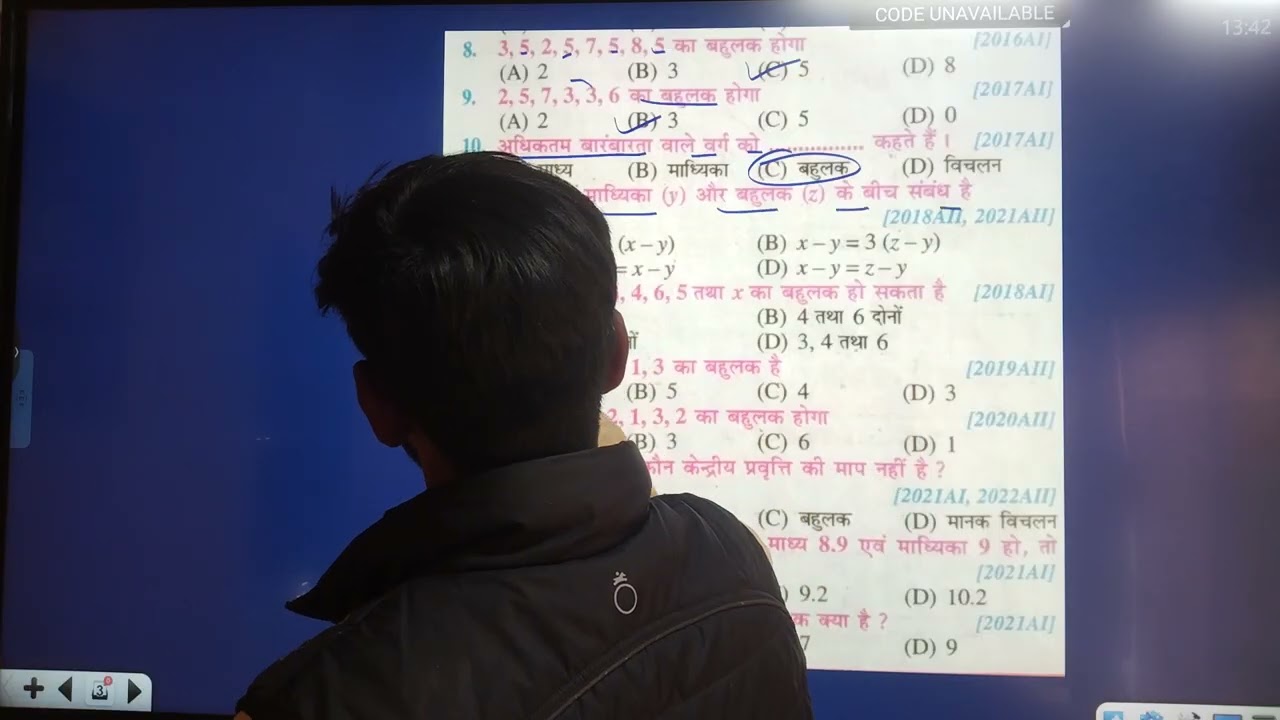 CODE UNAVAILABLE
13:42
8. 3, 5, 2, 5, 7, 5, 8, 5 का बहुलक होगा [2016AI]
(A) 2 (B) 3 (C) 5 (D) 8
9. 2, 5, 7, 3, 3, 6 का बहुलक होगा [2017AI]
(A) 2 (B) 3 (C) 5 (D) 0
10. अधिकतम बारंबारता वाले वर्ग को .............. कहते हैं। [2017AI]
माध्य (B) माध्यिका (C) बहुलक (D) विचलन
माध्यिका (y) और बहुलक (z) के बीच संबंध है
[2018AII, 2021AII]
(x – y) (B) x – y = 3 (z – y)
= x – y (D) x – y = z – y
, 4, 6, 5 तथा x का बहुलक हो सकता है [2018AI]
(B) 4 तथा 6 दोनों
(D) 3, 4 तथा 6
1, 3 का बहुलक है [2019AII]
(B) 5 (C) 4 (D) 3
2, 1, 3, 2 का बहुलक होगा [2020AII]
(B) 3 (C) 6 (D) 1
कौन केन्द्रीय प्रवृत्ति की माप नहीं है ?
[2021AI, 2022AII]
(C) बहुलक (D) मानक विचलन
माध्य 8.9 एवं माध्यिका 9 हो, तो
[2021AI]
) 9.2 (D) 10.2
क क्या है ? [2021AI]
7 (D) 9
3